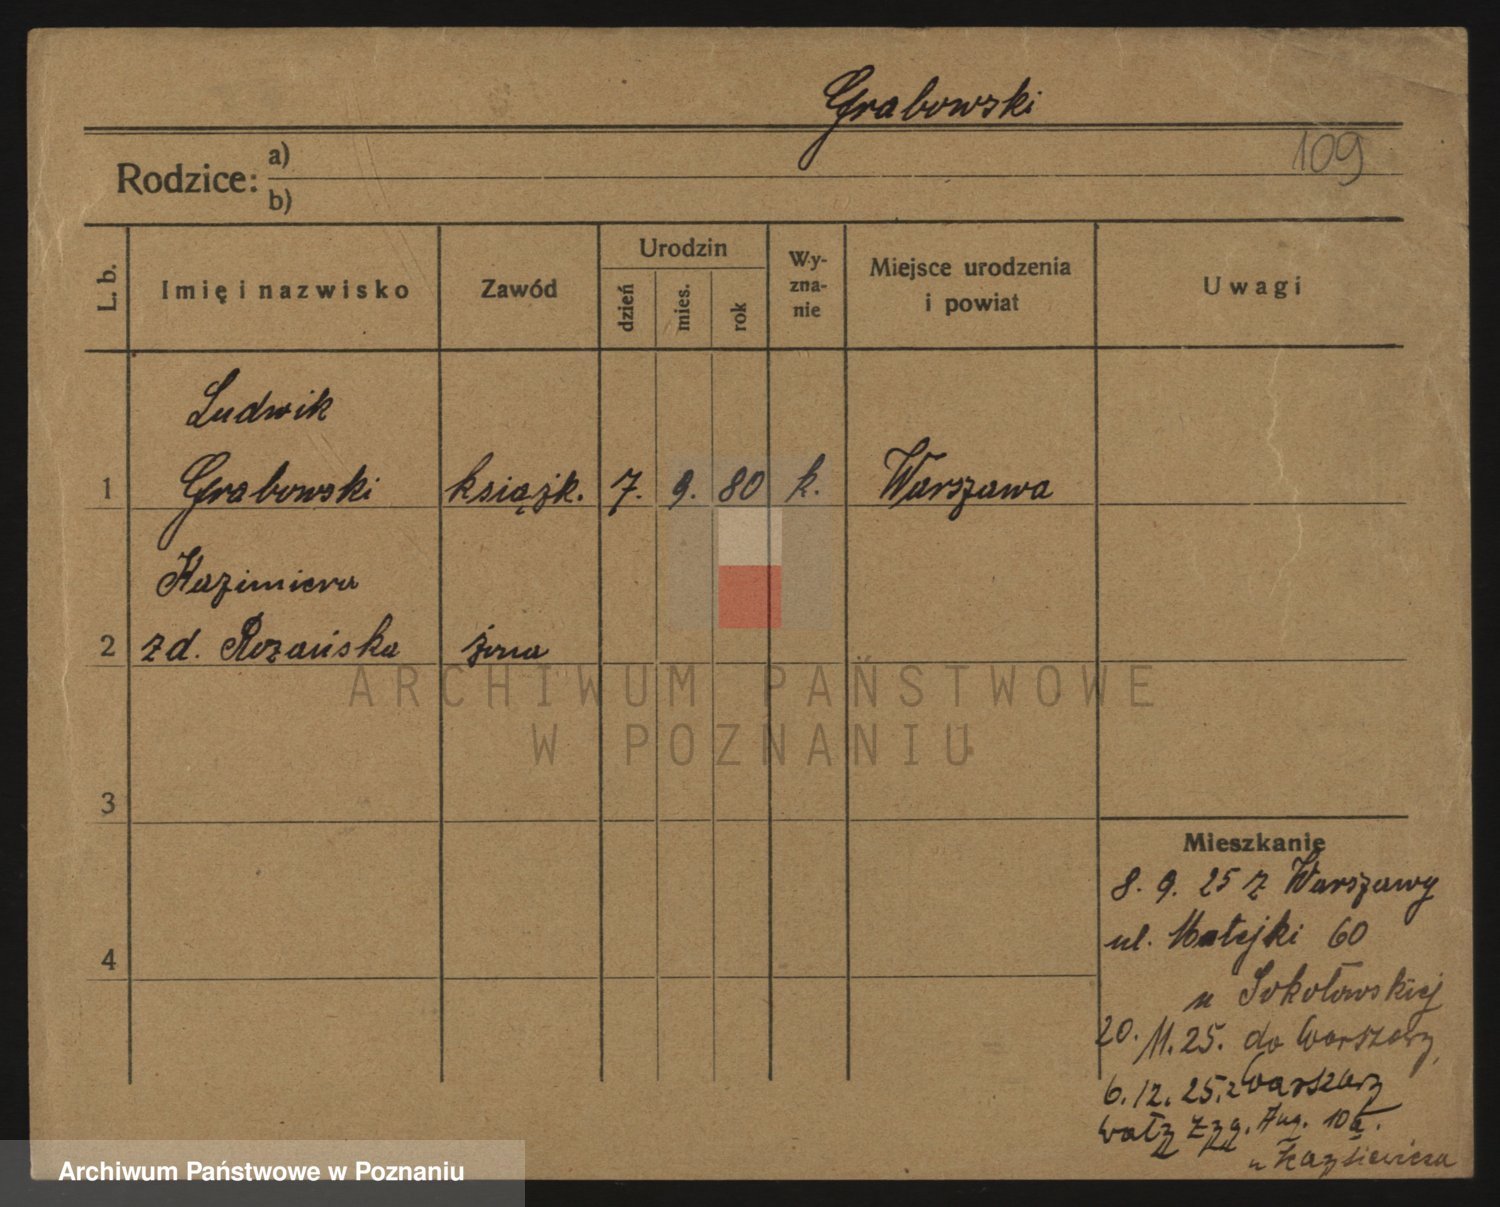 Grabowski
109
Rodzice: a)
b)
L. b.
Imię i nazwisko
Zawód
Urodzin
dzień
mies.
rok
Wy-
zna-
nie
Miejsce urodzenia
i powiat
Uwagi
Ludwik
1 Grabowski książk. 7. 9. 80 k. Warszawa
Kazimiera
2 zd. Rozańska żona
ARCHIWUM PAŃSTWOWE
W POZNANIU
3
Mieszkanie
8. 9. 25 z Warszawy
ul. Matejki 60
4
u Sokołowskiej
20. 11. 25. do Warszawy
6. 12. 25. z Warszawy
Wały Zyg. Aug. 10
u
Archiwum Państwowe w Poznaniu